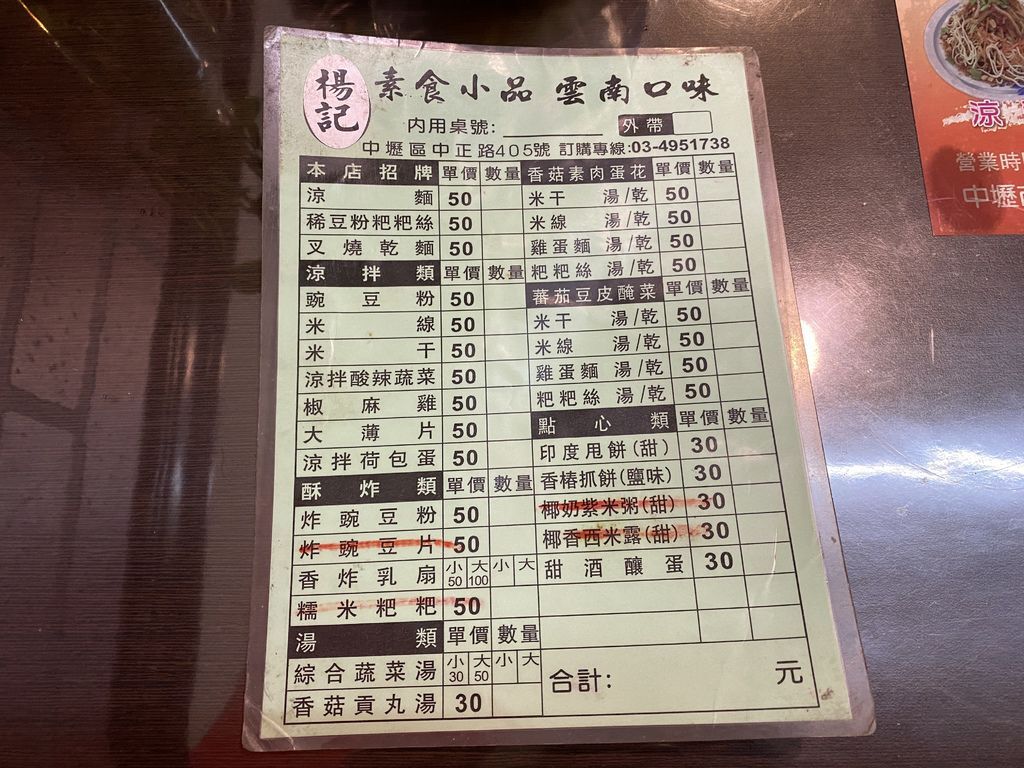 楊記 素食小品 雲南口味
內用桌號: 外帶
中壢區中正路405號 訂購專線:03-4951738
本店招牌 單價 數量
涼麵 50
稀豆粉粑粑絲 50
叉燒乾麵 50
涼拌類 單價 數量
豌豆粉 50
米線 50
米干 50
涼拌酸辣蔬菜 50
椒麻雞 50
大薄片 50
涼拌荷包蛋 50
酥炸類 單價 數量
炸豌豆粉 50
炸豌豆片 50
香炸乳扇 小50 大100 小 大
糯米粑粑 50
湯類 單價 數量
綜合蔬菜湯 小30 大50 小 大
香菇貢丸湯 30
香菇素肉蛋花 單價 數量
米干 湯/乾 50
米線 湯/乾 50
雞蛋麵 湯/乾 50
粑粑絲 湯/乾 50
蕃茄豆皮醃菜 單價 數量
米干 湯/乾 50
米線 湯/乾 50
雞蛋麵 湯/乾 50
粑粑絲 湯/乾 50
點心類 單價 數量
印度甩餅(甜) 30
香椿抓餅(鹽味) 30
椰奶紫米粥(甜) 30
椰香西米露(甜) 30
甜酒釀蛋 30
合計: 元
涼
營業時
中壢